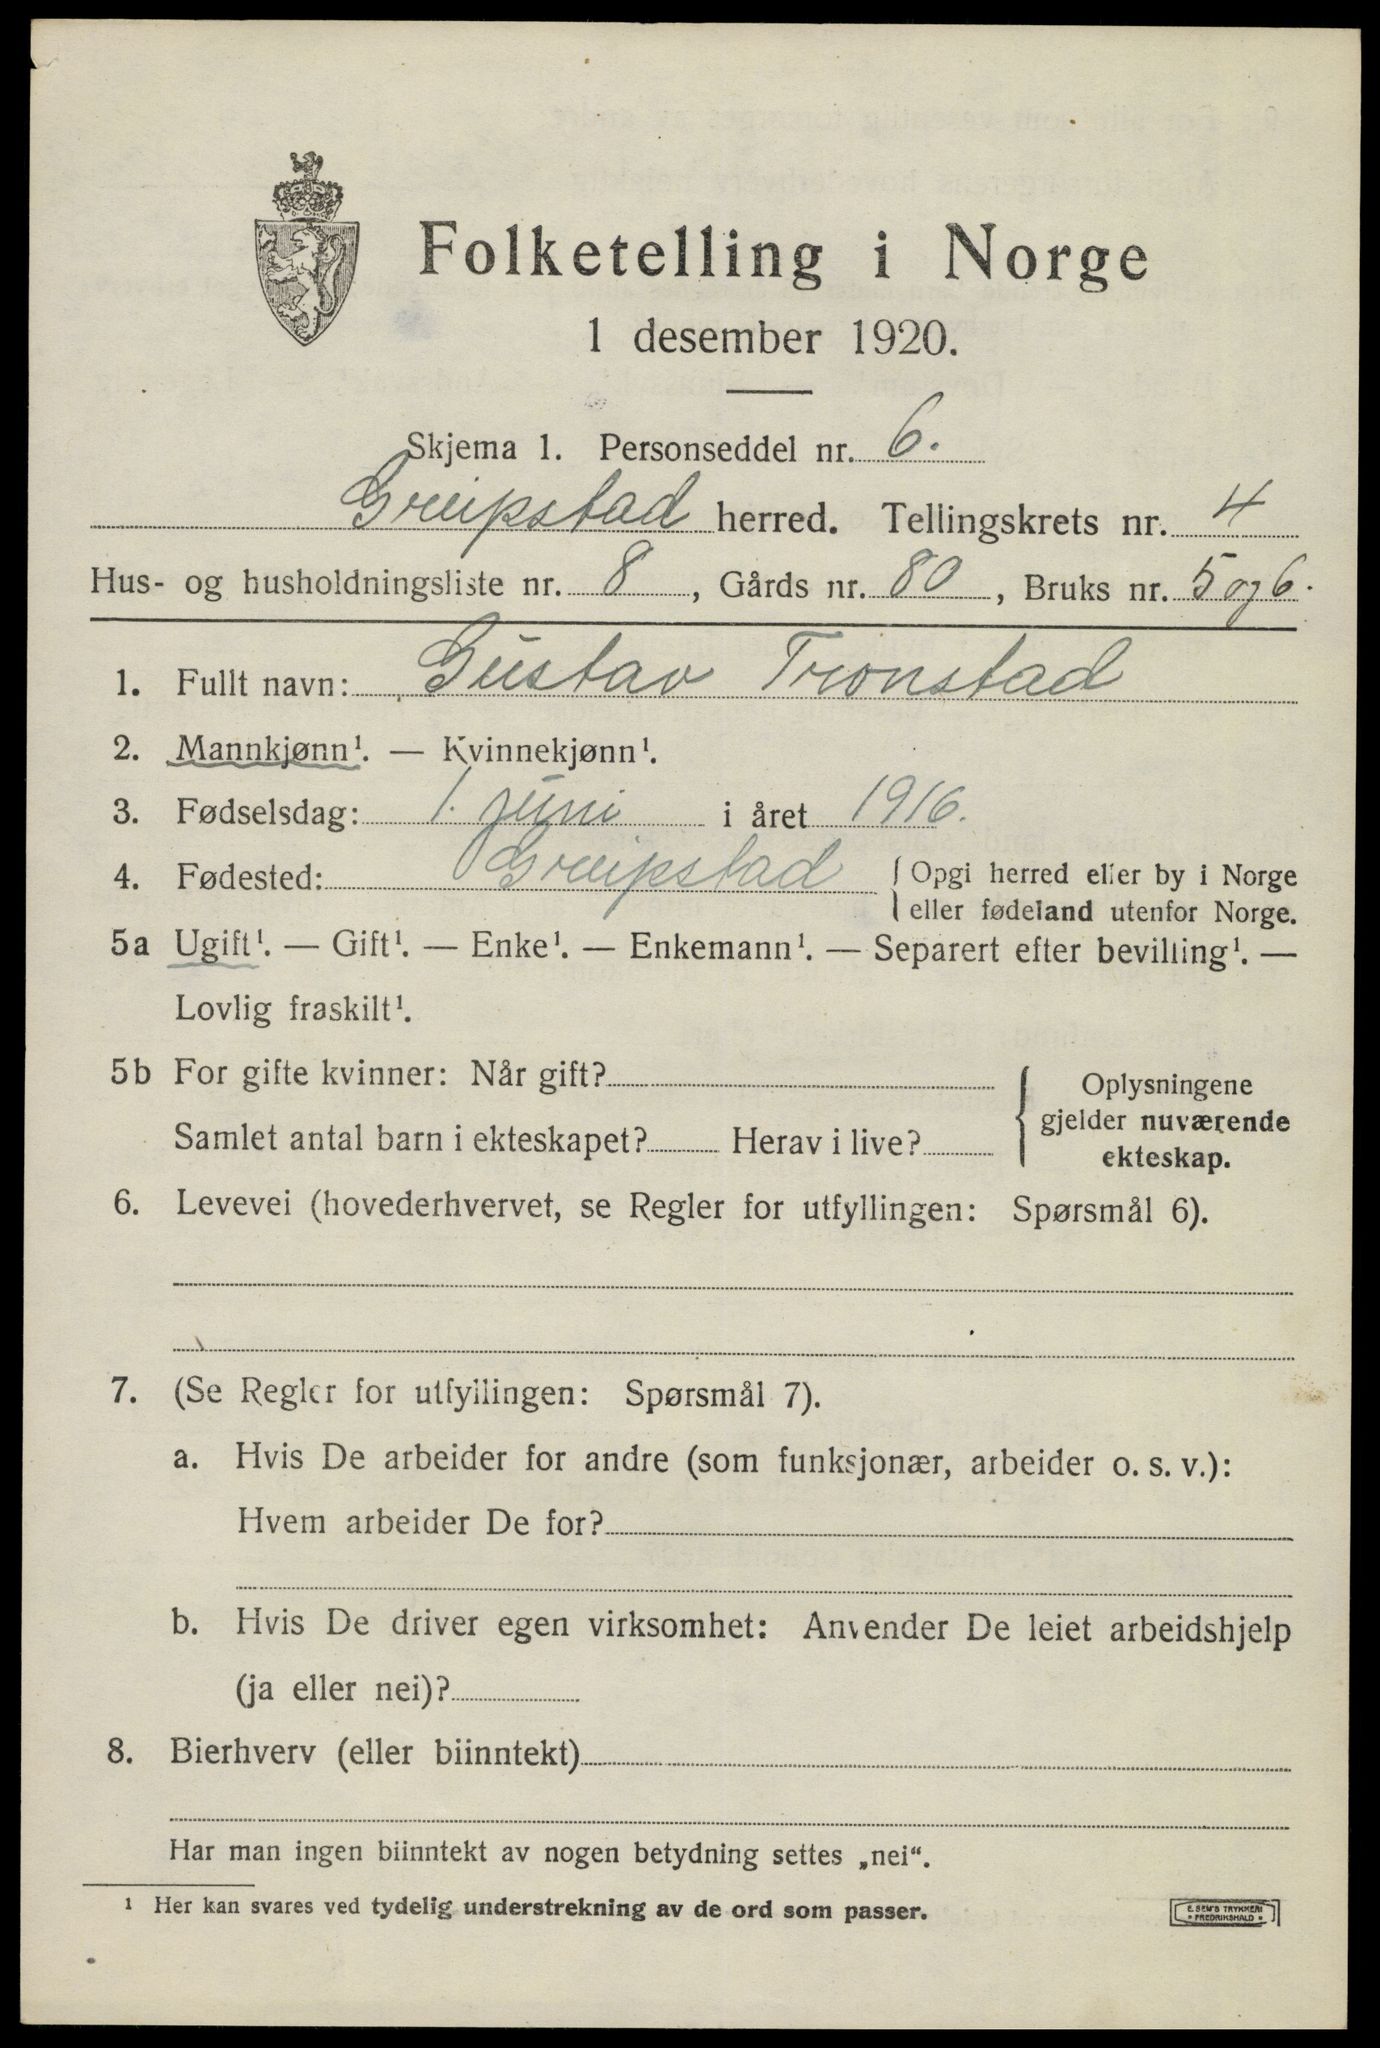 Folketelling i Norge
1 desember 1920.
Skjema 1. Personseddel nr. 6.
Greipstad herred. Tellingskrets nr. 4
Hus- og husholdningsliste nr. 8, Gårds nr. 80, Bruks nr. 5 og 6.
1. Fullt navn: Gustav Tronstad
2. Mannkjønn¹. — Kvinnekjønn¹.
3. Fødselsdag: 1. juni i året 1916.
4. Fødested: Greipstad { Opgi herred eller by i Norge
eller fødeland utenfor Norge.
5a Ugift¹. — Gift¹. — Enke¹. — Enkemann¹. — Separert efter bevilling¹. —
Lovlig fraskilt¹.
5b For gifte kvinner: Når gift?
Samlet antal barn i ekteskapet? Herav i live?
{ Oplysningene
gjelder nuværende
ekteskap.
6. Levevei (hovederhvervet, se Regler for utfyllingen: Spørsmål 6).
7. (Se Regler for utfyllingen: Spørsmål 7).
a. Hvis De arbeider for andre (som funksjonær, arbeider o. s. v.):
Hvem arbeider De for?
b. Hvis De driver egen virksomhet: Anvender De leiet arbeidshjelp
(ja eller nei)?
8. Bierhverv (eller biinntekt)
Har man ingen biinntekt av nogen betydning settes „nei“.
¹ Her kan svares ved tydelig understrekning av de ord som passer.
E. SEM'S TRYKKERI
* FREDRIKSHALD *